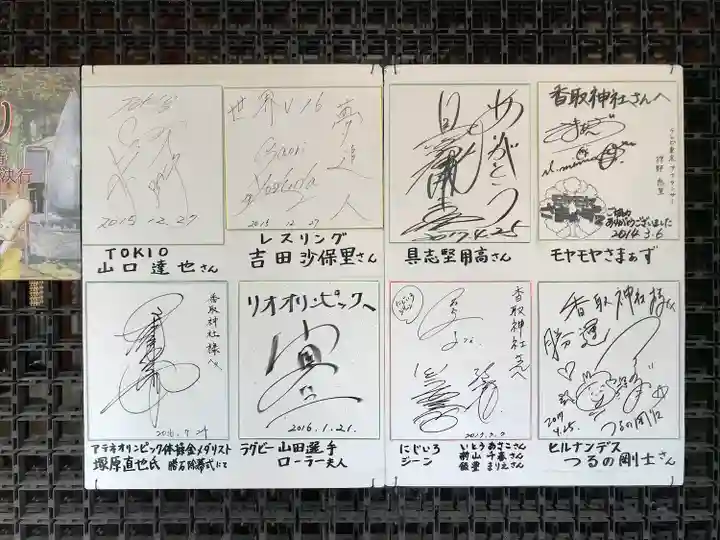 り
決行
TOKIO
2015 12.27
TOKIO
山口達也さん
世界V16
夢追人
Saori
Yoshida
2015 12 27
レスリング
吉田沙保里さん
ありがとう
2017.4.25
具志堅用高さん
香取神社さんへ
テレビ東京アナウンサー
狩野恵里
ご協力
ありがとうございました
2014.3.6
モヤモヤさまぁず
香取神社様へ
2016.7.24
アテネオリンピック体操金メダリスト
塚原直也氏 勝石除幕式にて
リオオリンピックへ
2016.1.21.
ラグビー山田選手
ローラー夫人
にじいろジーン
香取神社さんへ
にじいろ
ジーン
いとうあさこさん
村山千春さん
飯豊まりえさん
香取神社様
勝運
2017
4.25.
つるの剛士
ヒルナンデス
つるの剛士さん